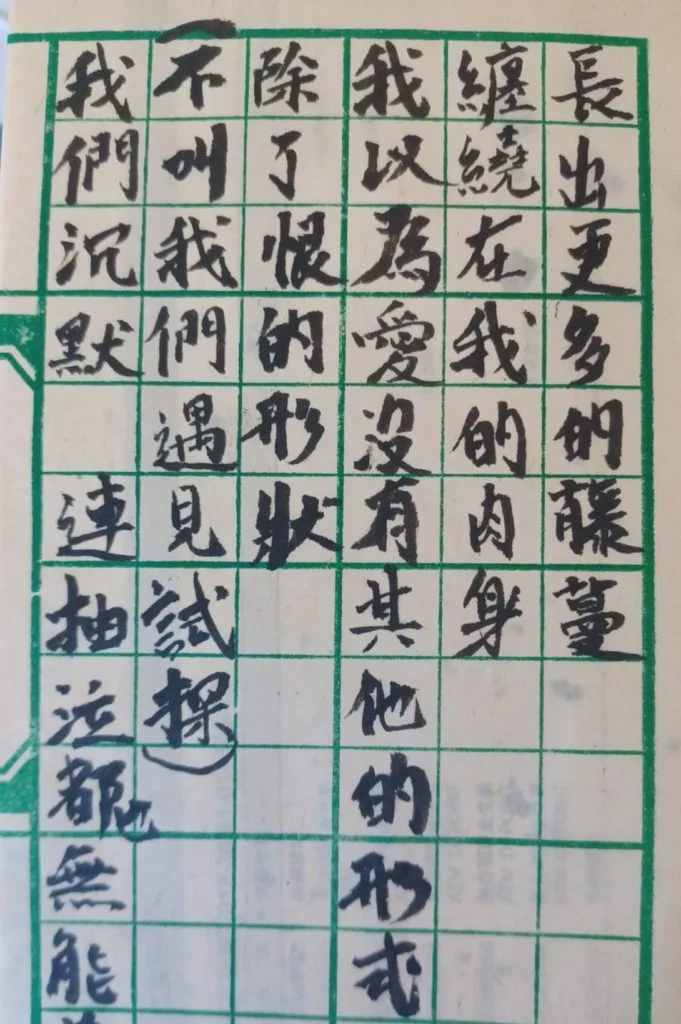 長出更多的藤蔓
纏繞在我的肉身
我以為愛沒有其他的形式
除了恨的形狀
(不叫我們遇見試探)
我們沉默 連抽泣都也無能